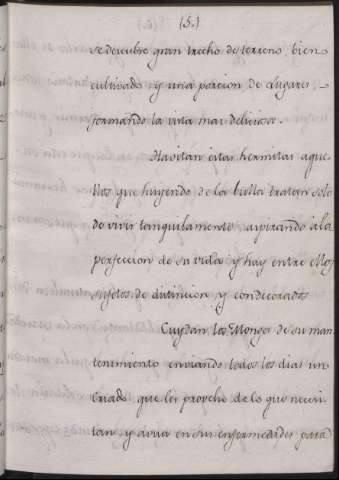 (5.)
se descubre gran trecho de terreno bien
cultivado y una porcion de lugares,
formando la vista mas deliciosa.
Havitan estas hermitas aque
llos que huyendo de la bulla tratan solo
de vivir tanquilamente, aspirando à la
perfeccion de su vida y hay entre ellos
sujetos de distincion y condecorados.
Cuydan los Monges de su man
tenimiento enviando todos los dias un
Criado que les provehe de lo que necesi
tan, y avisa en sus enfermedades para